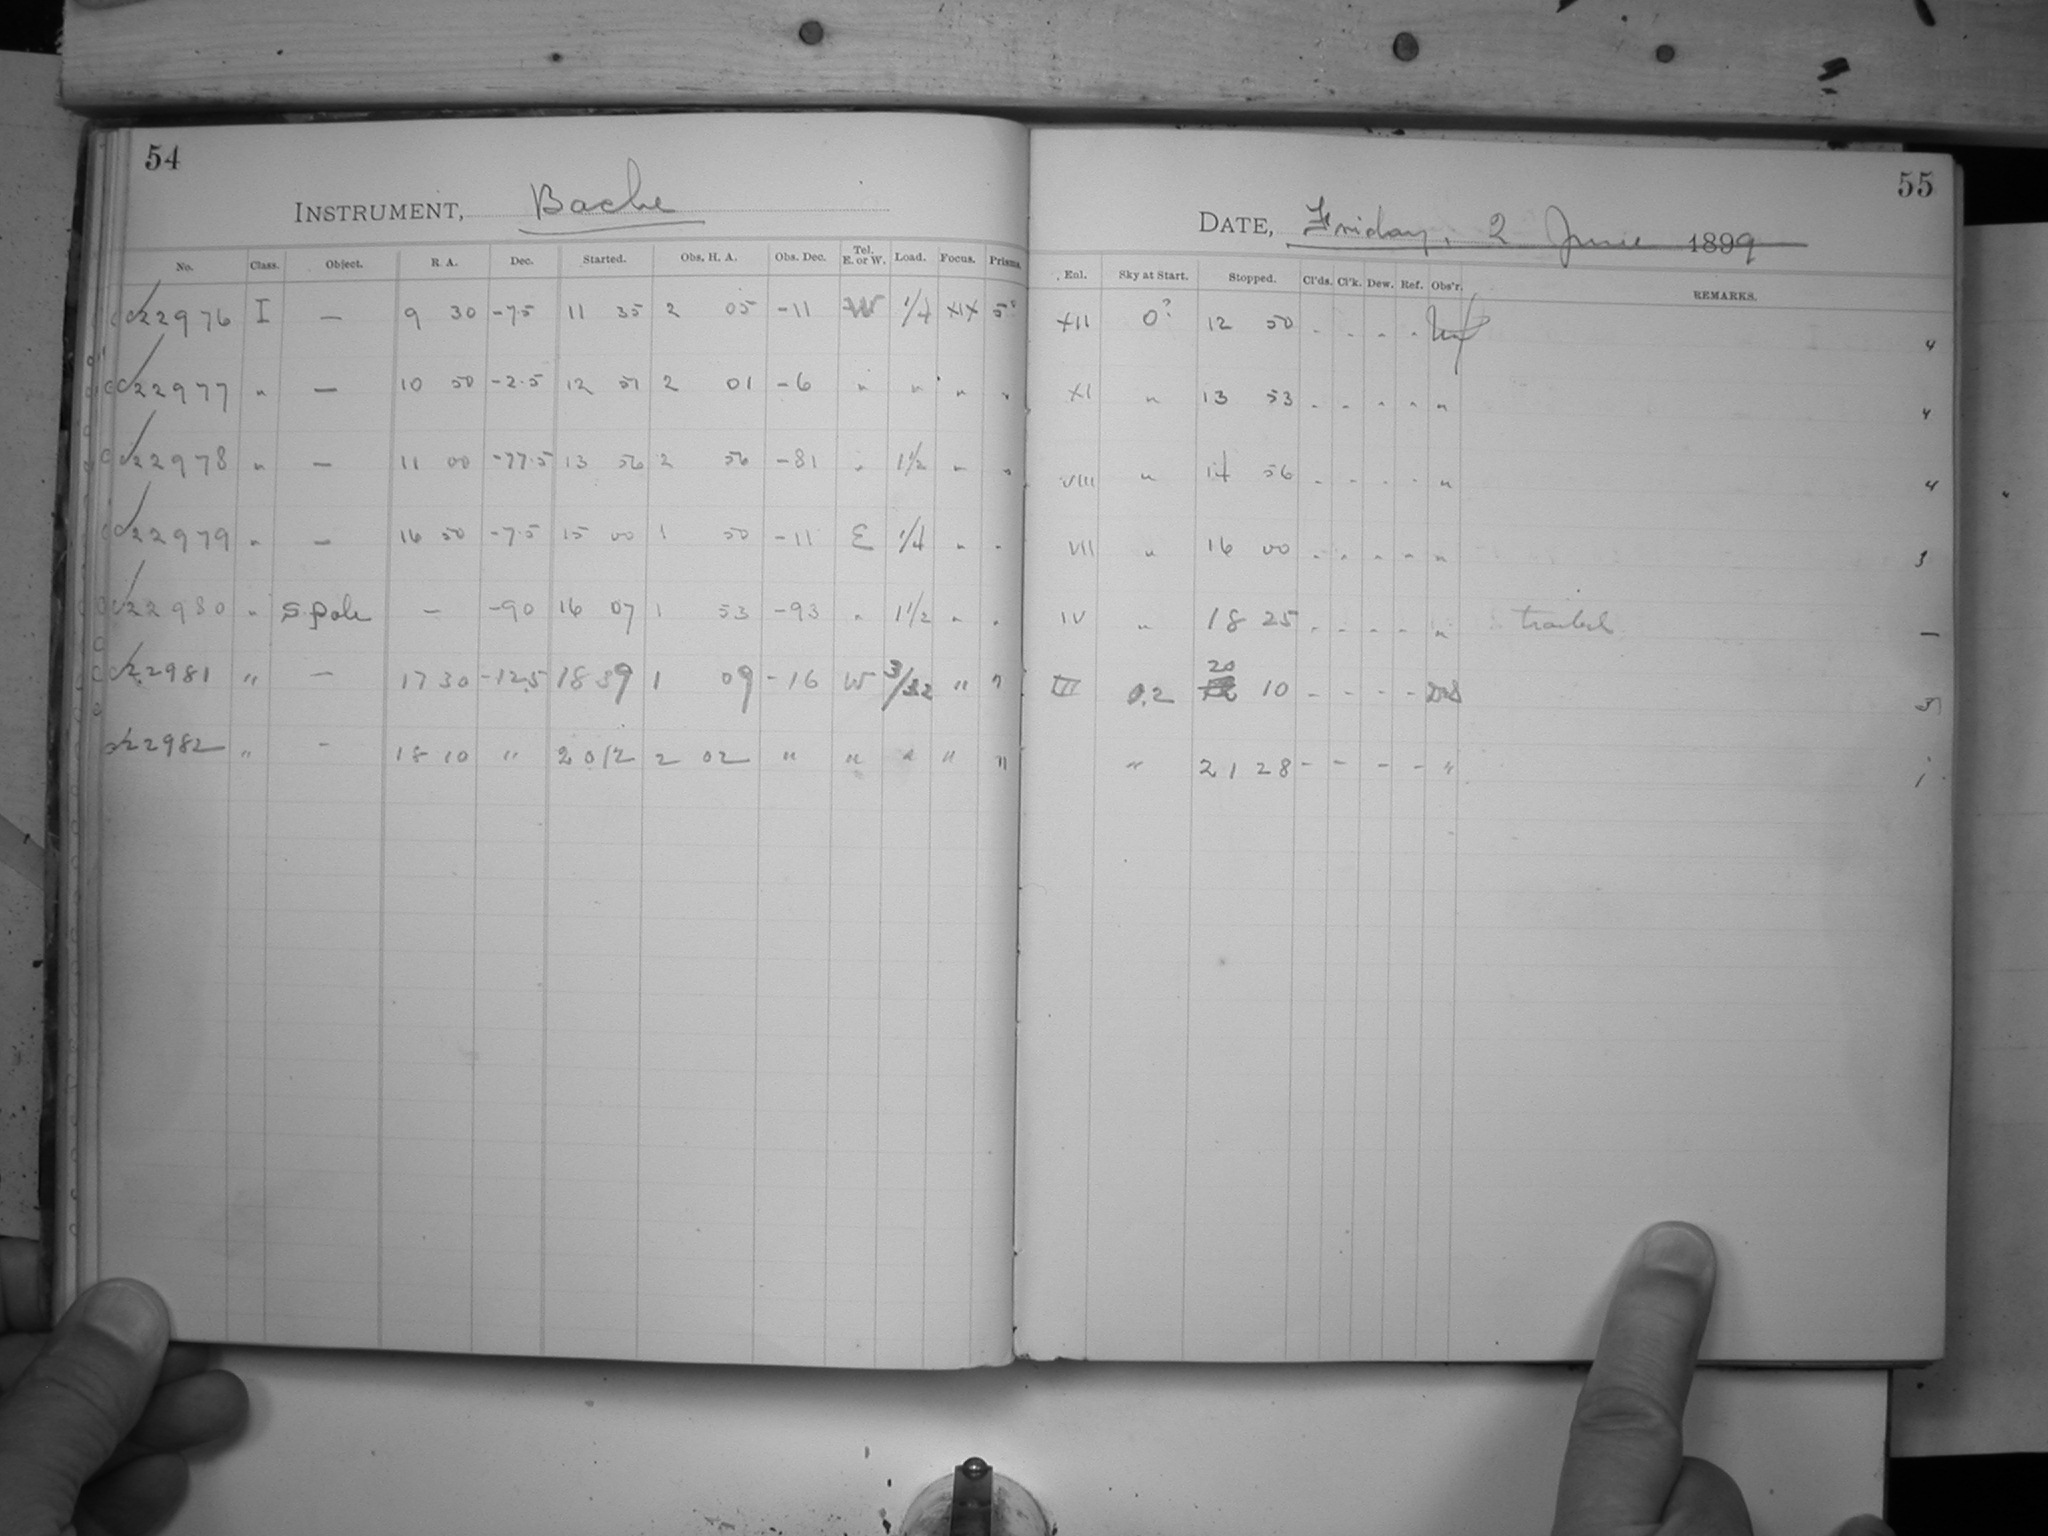 54
INSTRUMENT, Bache
No. Class. Object. R. A. Dec. Started. Obs. H. A. Obs. Dec. Tel. E. or W. Load. Focus. Prisms.
22976 I — 9 30 -7.5 11 35 2 05 -11 W 1/4 XIX 5°
22977 " — 10 50 -2.5 12 51 2 01 -6 " " " "
22978 " — 11 00 -77.5 13 56 2 56 -81 " 1 1/2 " "
22979 " — 16 50 -7.5 15 00 1 50 -11 E 1/4 " "
22980 " S. Pole — -90 16 07 1 53 -93 " 1 1/2 " "
22981 " — 17 30 -12.5 18 39 1 09 -16 W 3/32 " "
22982 " - 18 10 " 20 12 2 02 " " " " "
55
DATE, Friday, 2 June 1899
Enl. Sky at Start. Stopped. Cl'ds. Cl'k. Dew. Ref. Obs'r. REMARKS.
XII 0? 12 50 - - - - 4
XI " 13 53 - - - - " 4
VIII " 14 56 - - - - " 4
VII " 16 00 - - - - " 3
IV " 18 25 - - - - " trailed —
III 0.2 20 10 - - - -
" 21 28 - - - - "